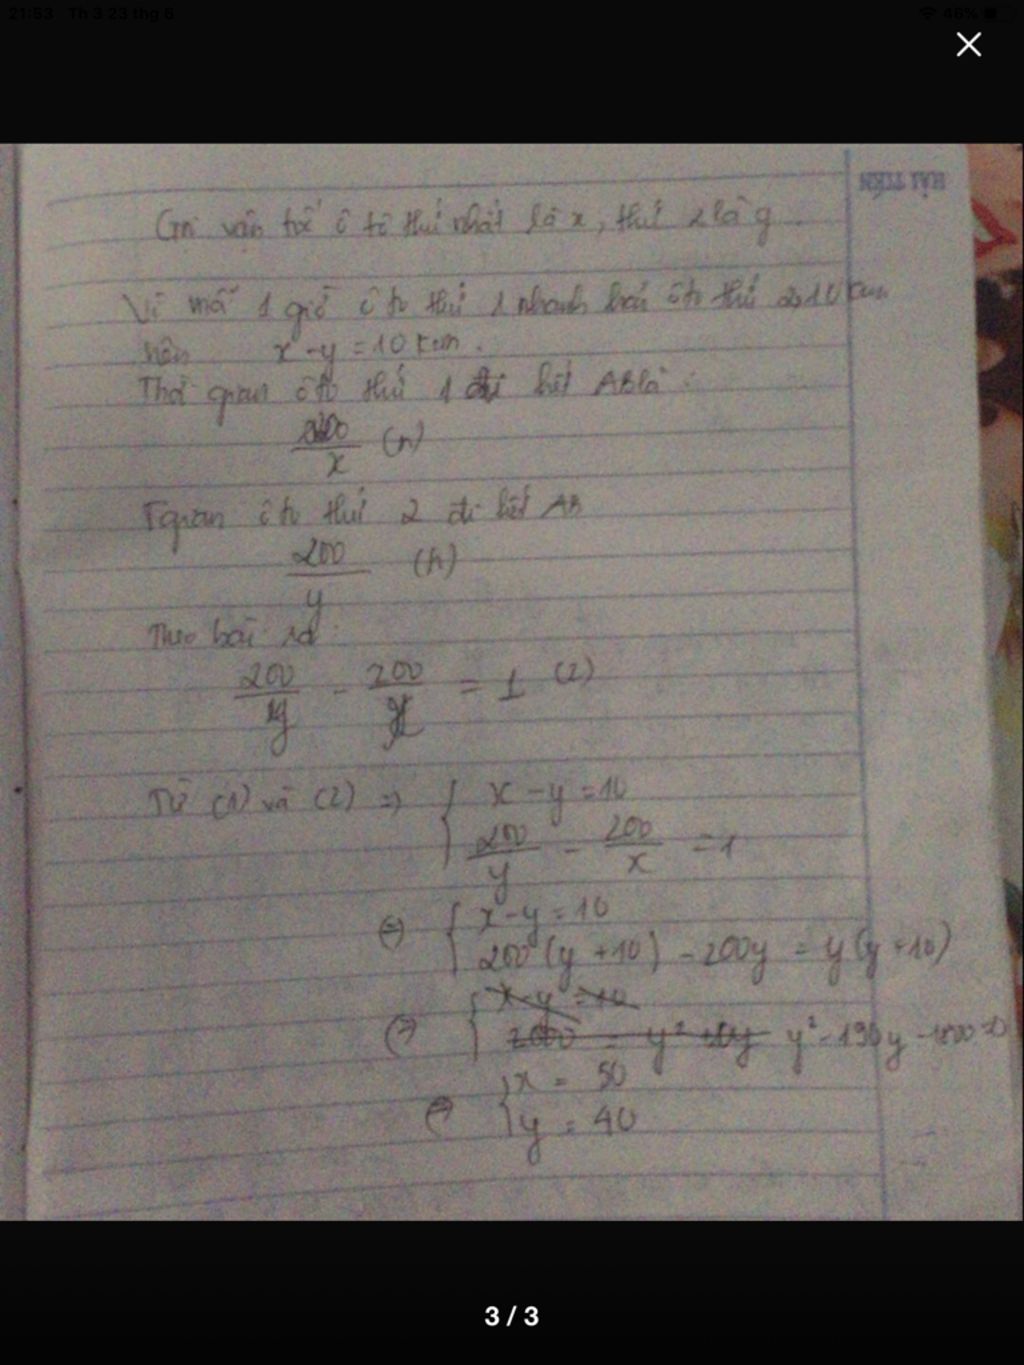 21:53 Th 3 23 thg 6
46%
HẢI TIẾN
Gọi vận tốc ô tô thứ nhất là x, thứ 2 là y
Vì mỗi 1 giờ ô tô thứ 1 nhanh hơn ô tô thứ 2 10 km
nên x - y = 10 km.
Thời gian ô tô thứ 1 đi hết AB là:
200/x (h)
Tgian ô tô thứ 2 đi hết AB
200/y (h)
Theo bài ra:
200/y - 200/x = 1 (2)
Từ (1) và (2) => { x - y = 10
200/y - 200/x = 1
(=) { x - y = 10
200(y + 10) - 200y = y(y + 10)
(=) { x - y = 10
2000 = y² + 10y y² - 190y
(=) { x = 50
y = 40
3 / 3